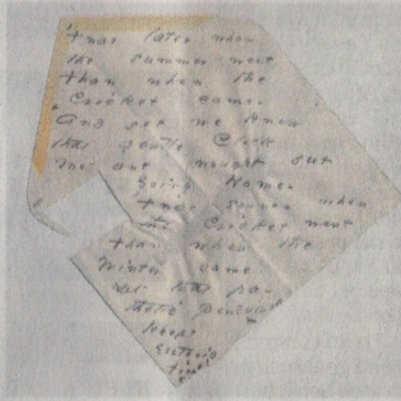 'Twas later when
the summer went
than when the
Cricket came.
And yet we knew
that gentle Clock
me ant nought but
Going Home.
'Twas sooner when
the Cricket went
than when the
Winter came
Yet that pa-
thetic Pendulum
Keeps
Esoteric
time